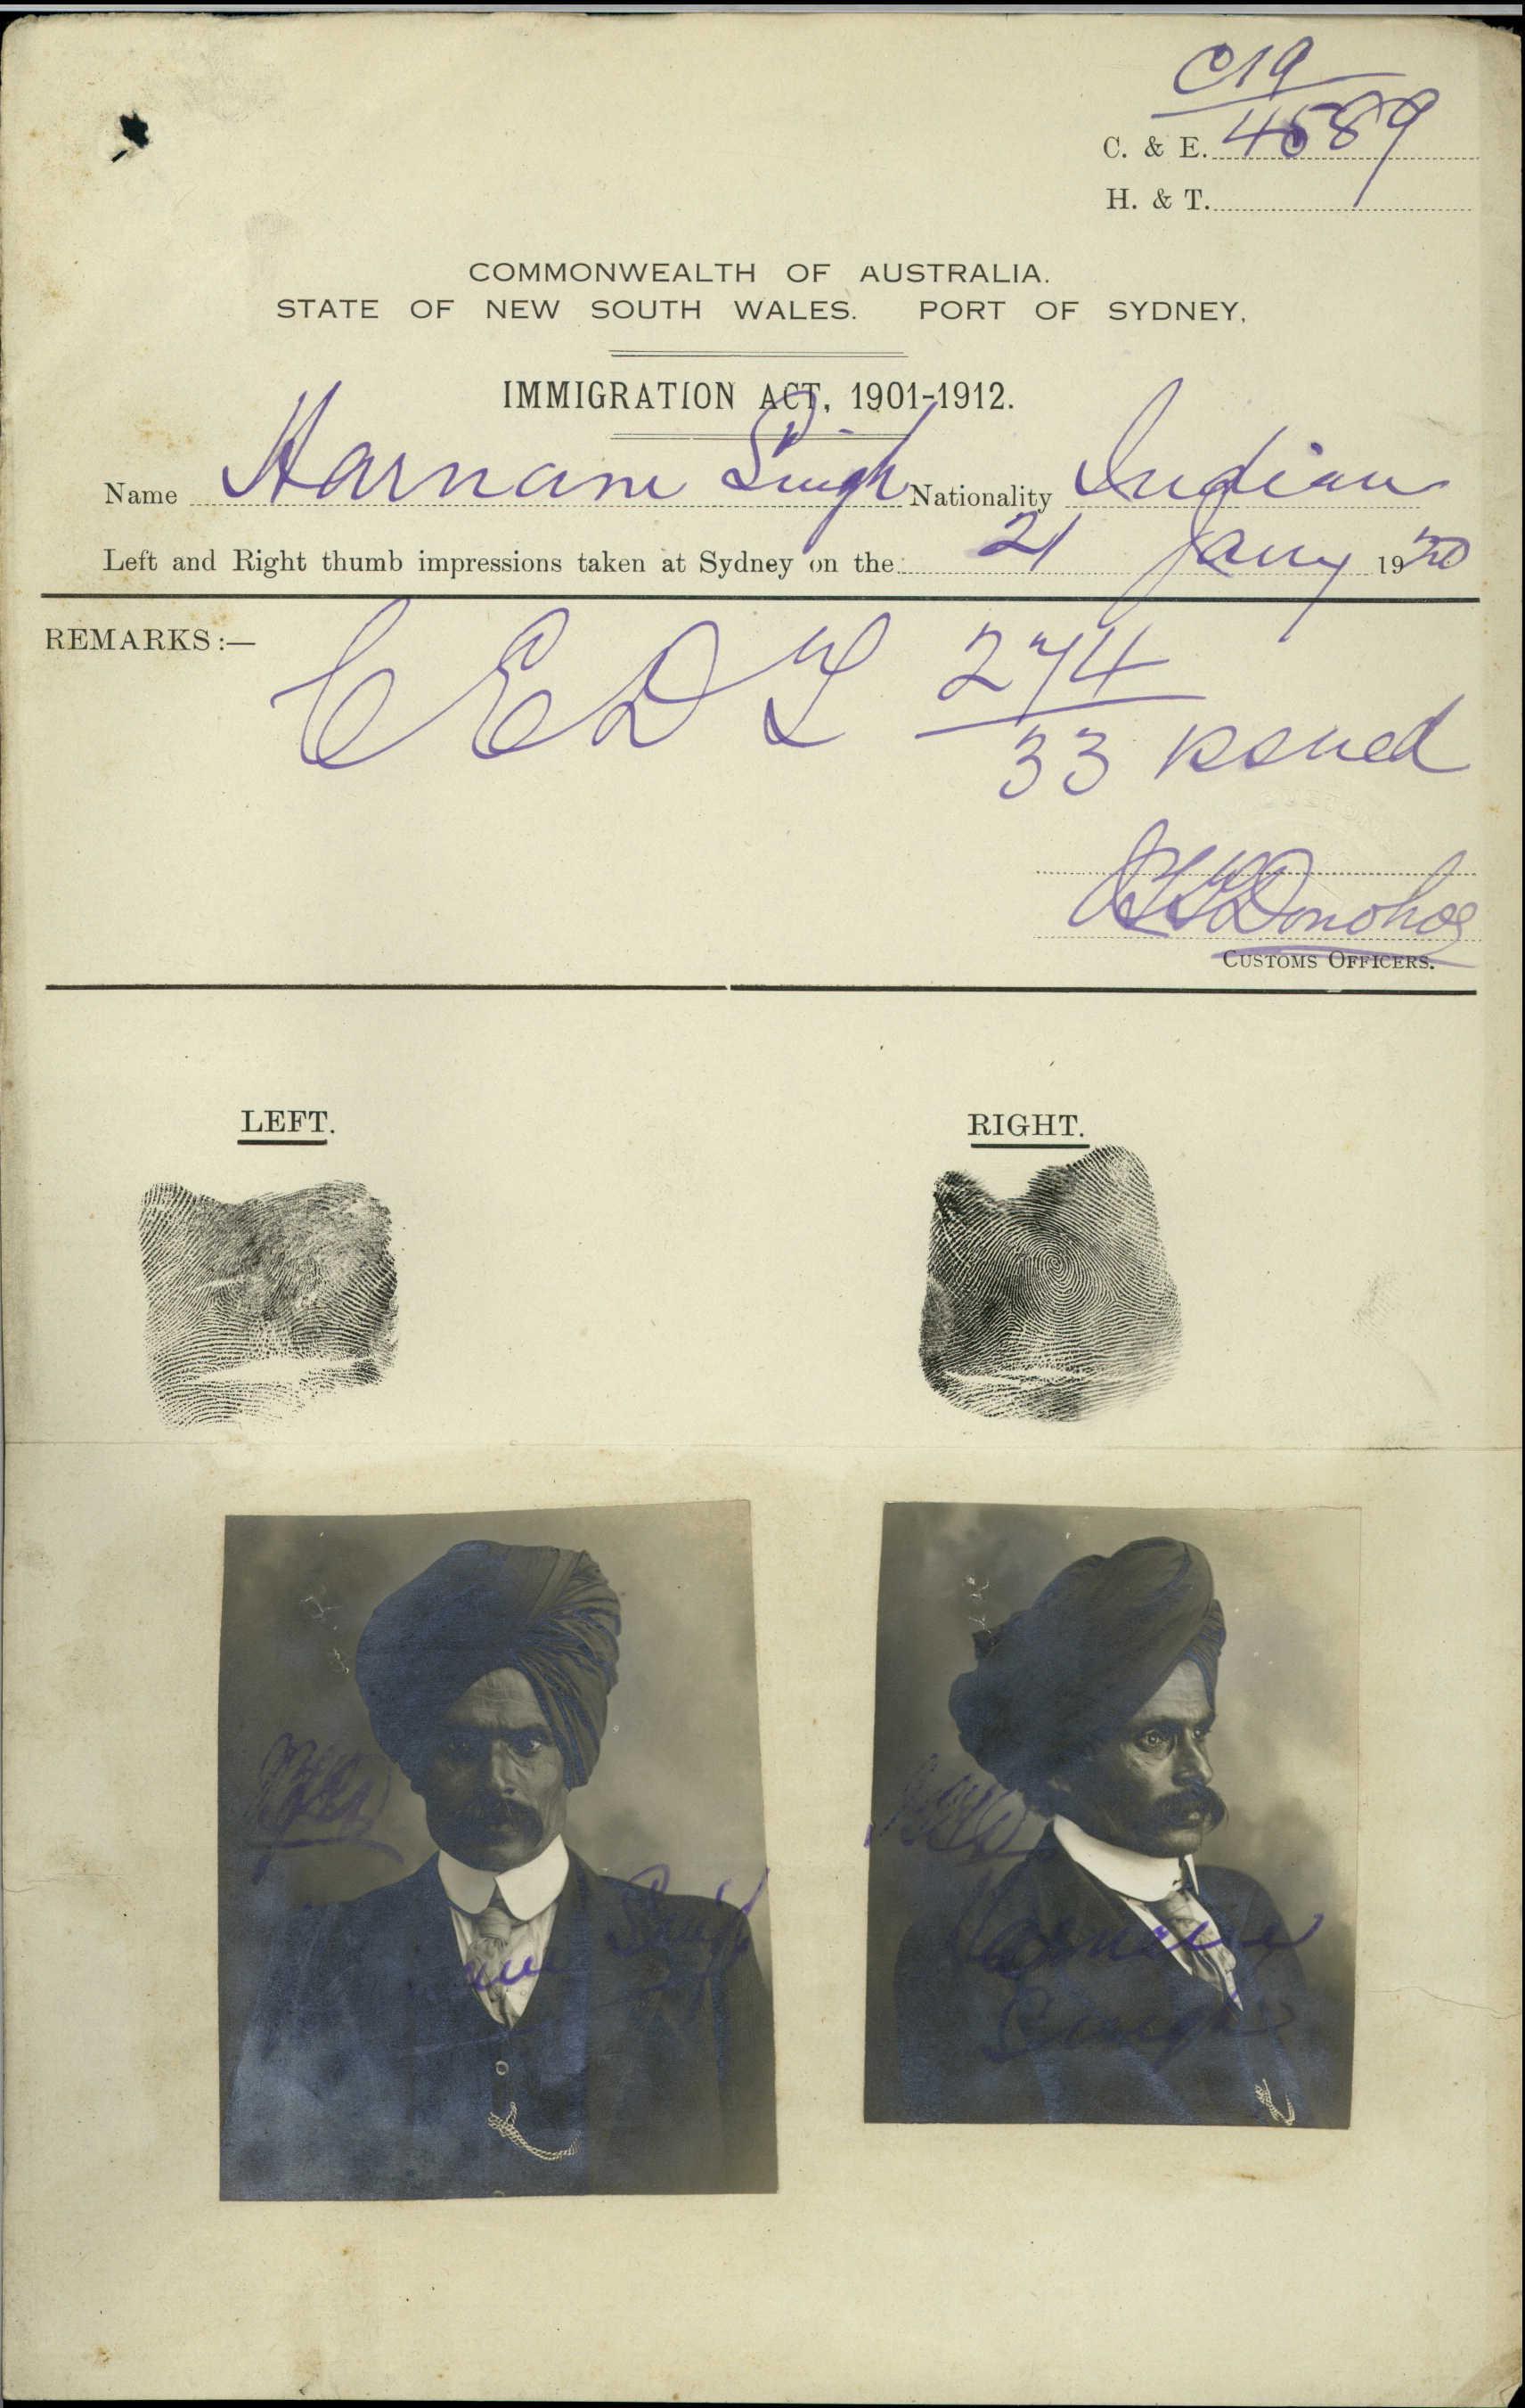 C19
C. & E. 4589
H. & T.
COMMONWEALTH OF AUSTRALIA.
STATE OF NEW SOUTH WALES. PORT OF SYDNEY.
IMMIGRATION ACT, 1901-1912.
Name Harnam Singh Nationality Indian
Left and Right thumb impressions taken at Sydney on the 21 Jany 1920
REMARKS :—
C E D T 274
33 issued
Donohoe
CUSTOMS OFFICERS.
LEFT. RIGHT.
Singh
Harnam
Singh